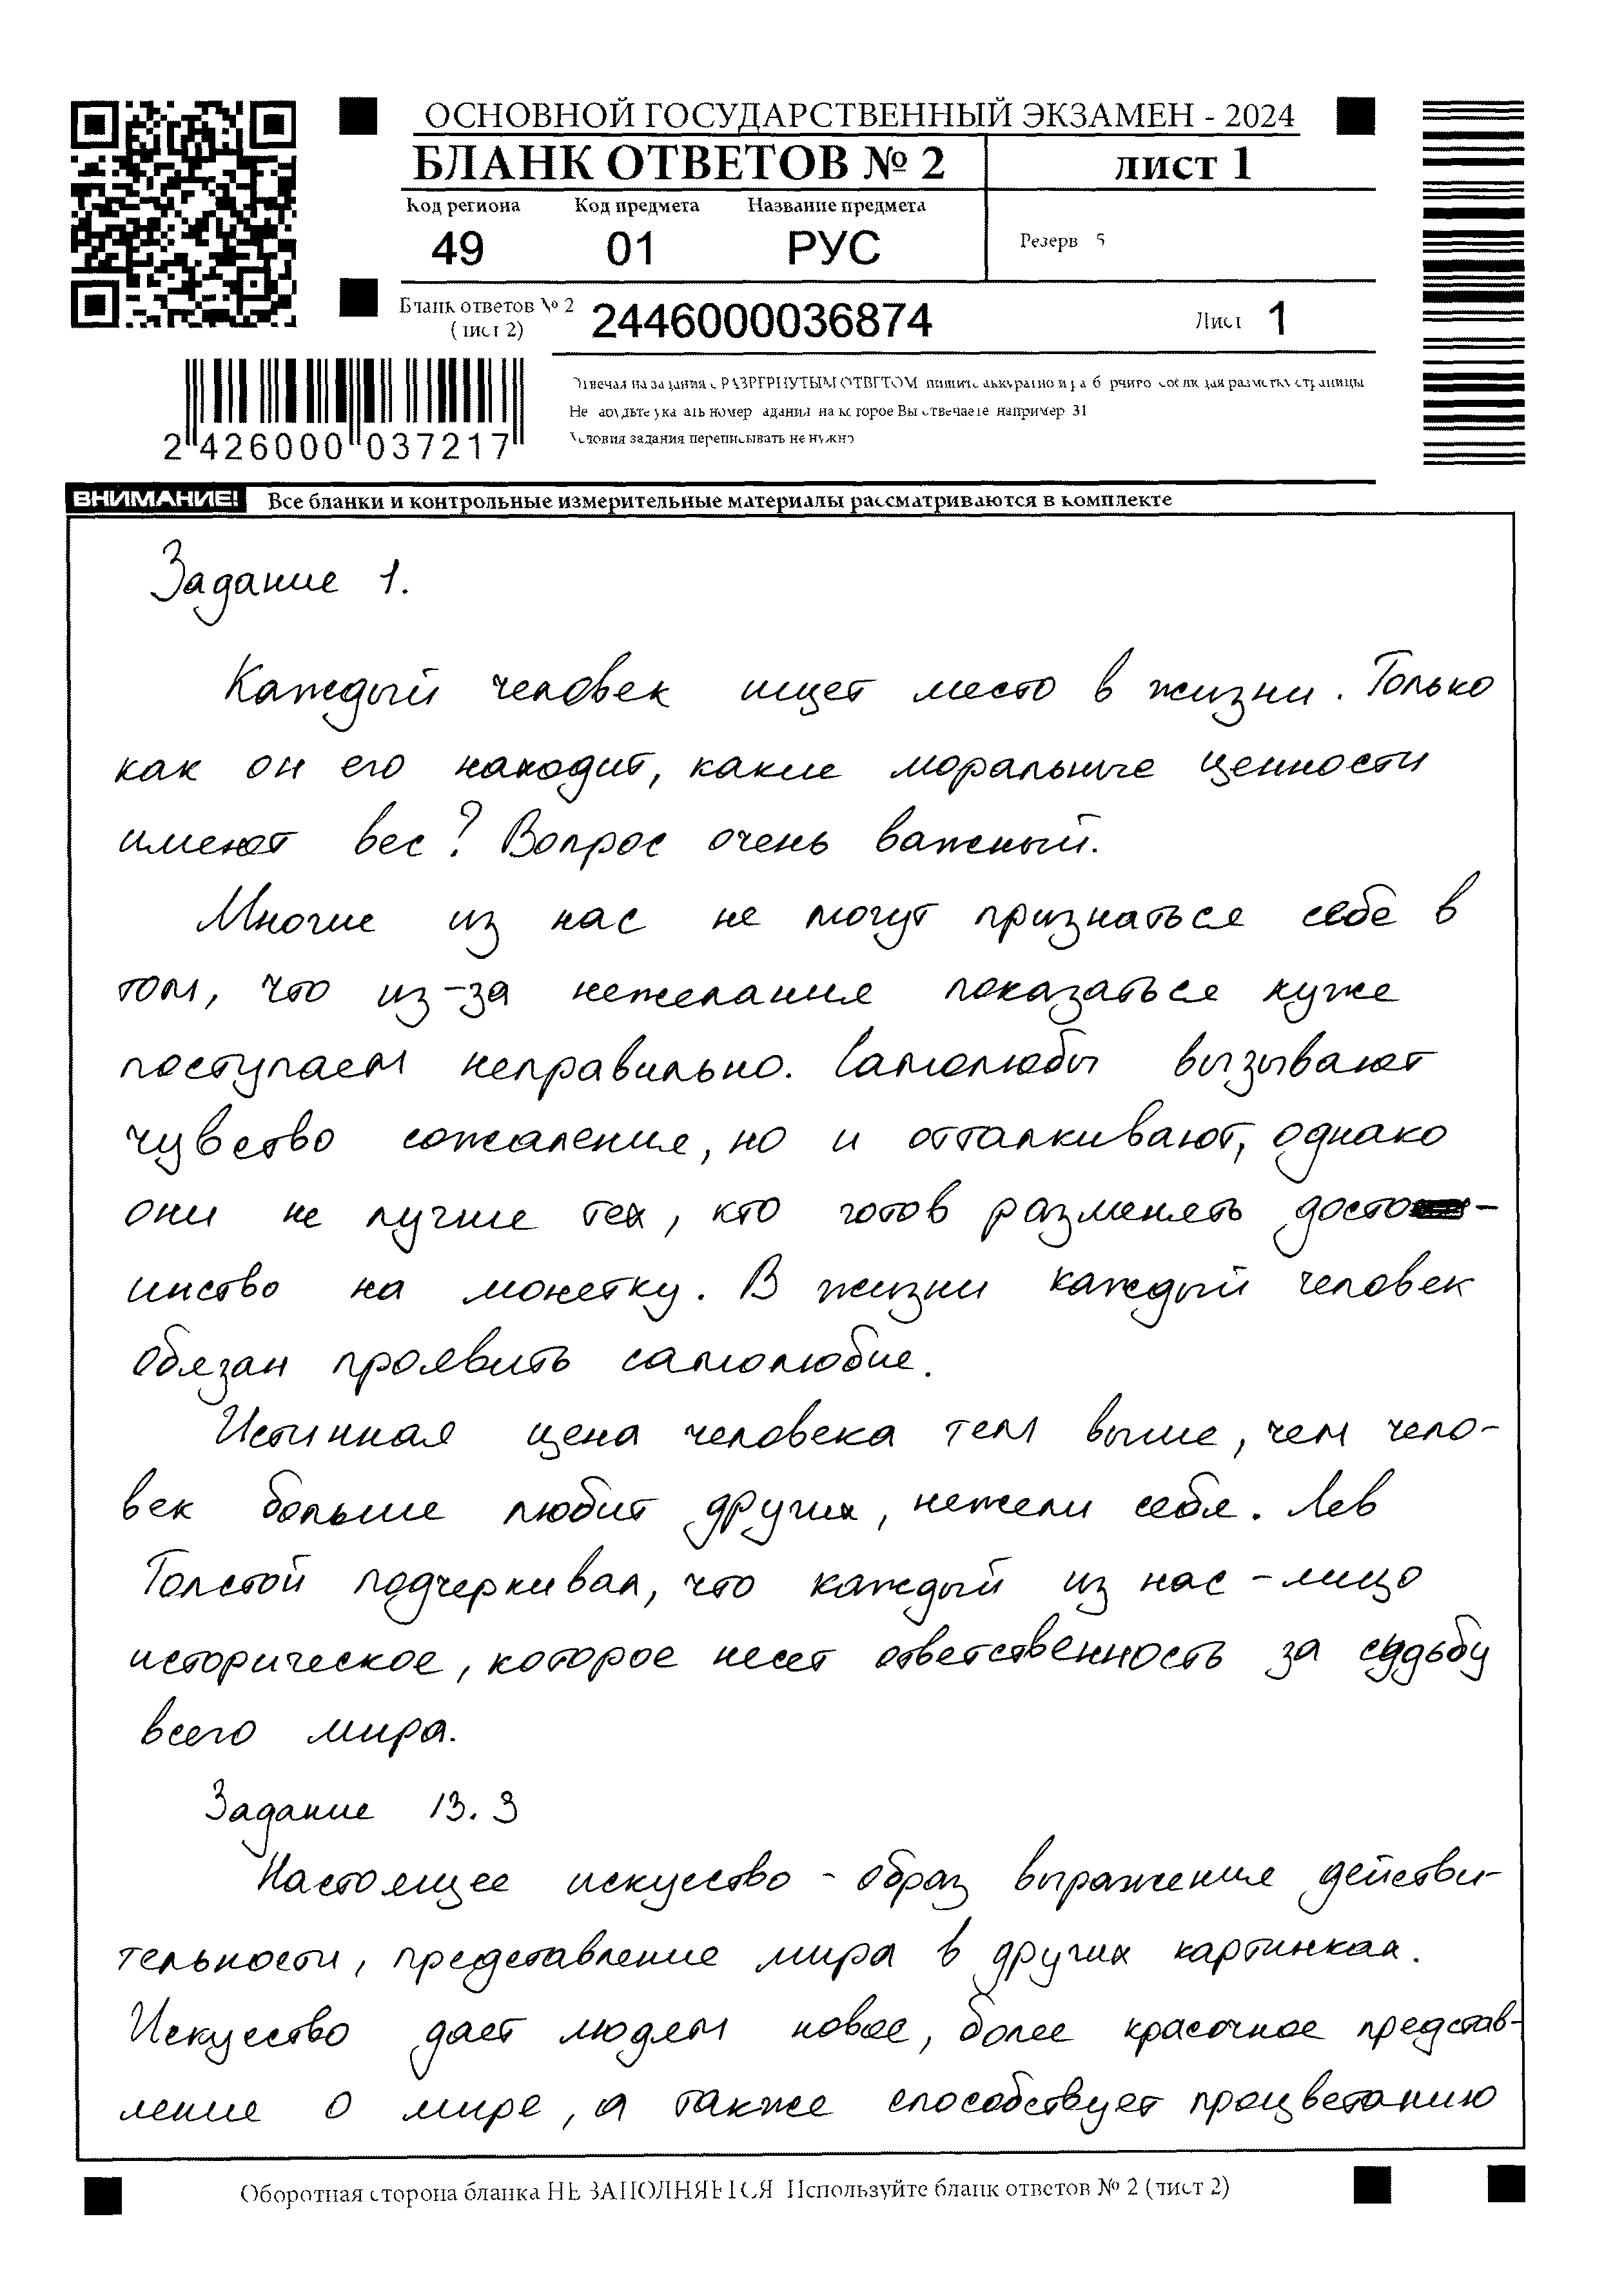 ОСНОВНОЙ ГОСУДАРСТВЕННЫЙ ЭКЗАМЕН - 2024
БЛАНК ОТВЕТОВ № 2 лист 1
Код региона Код предмета Название предмета
49 01 РУС
Резерв 5
Бланк ответов № 2
(лист 2)
2446000036874
Лист 1
Отвечая на задания с РАЗВЕРНУТЫМ ОТВЕТОМ пишите аккуратно и разборчиво соблюдая разметку страницы
Не забудьте указать номер задания на которое Вы отвечаете например 31
Условия задания переписывать не нужно
2 426000 037217
ВНИМАНИЕ! Все бланки и контрольные измерительные материалы рассматриваются в комплекте
Задание 1.
Каждый человек ищет место в жизни. Только
как он его находит, какие моральные ценности
имеют вес? Вопрос очень важный.
Многие из нас не могут признаться себе в
том, что из-за нежелания показаться хуже
поступаем неправильно. Самолюбы вызывают
чувство сожаления, но и отталкивают, однако
они не лучше тех, кто готов разменять досто-
инство на монетку. В жизни каждый человек
обязан проявить самолюбие.
Истинная цена человека тем выше, чем чело-
век больше любит других, нежели себя. Лев
Толстой подчеркивал, что каждый из нас - лицо
историческое, которое несет ответственность за судьбу
всего мира.
Задание 13.3
Настоящее искусство - образ выражения действи-
тельности, представление мира в других картинках.
Искусство дает людям новое, более красочное представ-
ление о мире, а также способствует процветанию
Оборотная сторона бланка НЕ ЗАПОЛНЯЕТСЯ Используйте бланк ответов № 2 (лист 2)